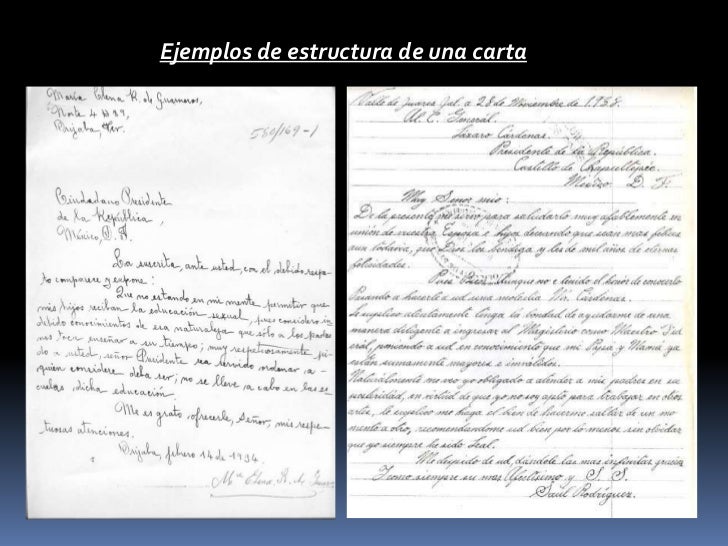 Ejemplos de estructura de una carta
María Elena R. de Guarneros,
Norte 4 # 89,
Orizaba, Ver.
580/169-1
Ciudadano Presidente
de la República,
México, D. F.
La suscrita, ante usted, con el debido respe-
to comparece y expone:
Que no estando en mi mente permitir que
mis hijos reciban la educación sexual, pues considero in-
debido conocimientos de esa naturaleza que sólo a los padres
nos toca enseñar a su tiempo; muy respetuosamente pi-
do a usted, señor Presidente sea servido ordenar a
quien considere deba ser; no se lleve a cabo en las es-
cuelas dicha educación.
Me es grato ofrecerle, Señor, mis respe-
tuosas atenciones.
Orizaba, febrero 14 de 1934.
Ma Elena R. de
Valle de Juárez Jal. a 28 de Noviembre de 1938.
Al C. General.
Lázaro Cárdenas.
Presidente de la República.
Castillo de Chapultepec.
México. D. F.
Muy Señor mio:
De la presente me sirvo para saludarlo muy afablemente en
unión de vuestra Esposa e hijos deseando que sean mas felices
aun todavia, que Dios los bendiga y les de mil años de eternas
felicidades.
Pues bien: aunque no e tenido el honor de conocerlo
Pasando a hacerle a ud una molestia Sr. Cárdenas.
Le suplico atentamente tenga la bondad de ayudarme de una
manera diligente a ingresar al Magisterio como Maestro
ral, poniendo a ud en conocimiento que mi Papá y Mamá ya
están sumamente mayores e inválidos.
Naturalmente me veo yo obligado a atender a mis padres en su
en virtud de que yo no soy apto para trabajar en otros
arte, le suplico me haga el bien de hacerme saber de un mo
mento a otro, recomendándome ud bien por lo menos sin olvidar
que yo siempre he sido Leal.
Me despido de ud, dándole las mas infinitas gracias
Y como siempre su mas Afectísimo y S. S.
Saúl Rodríguez.